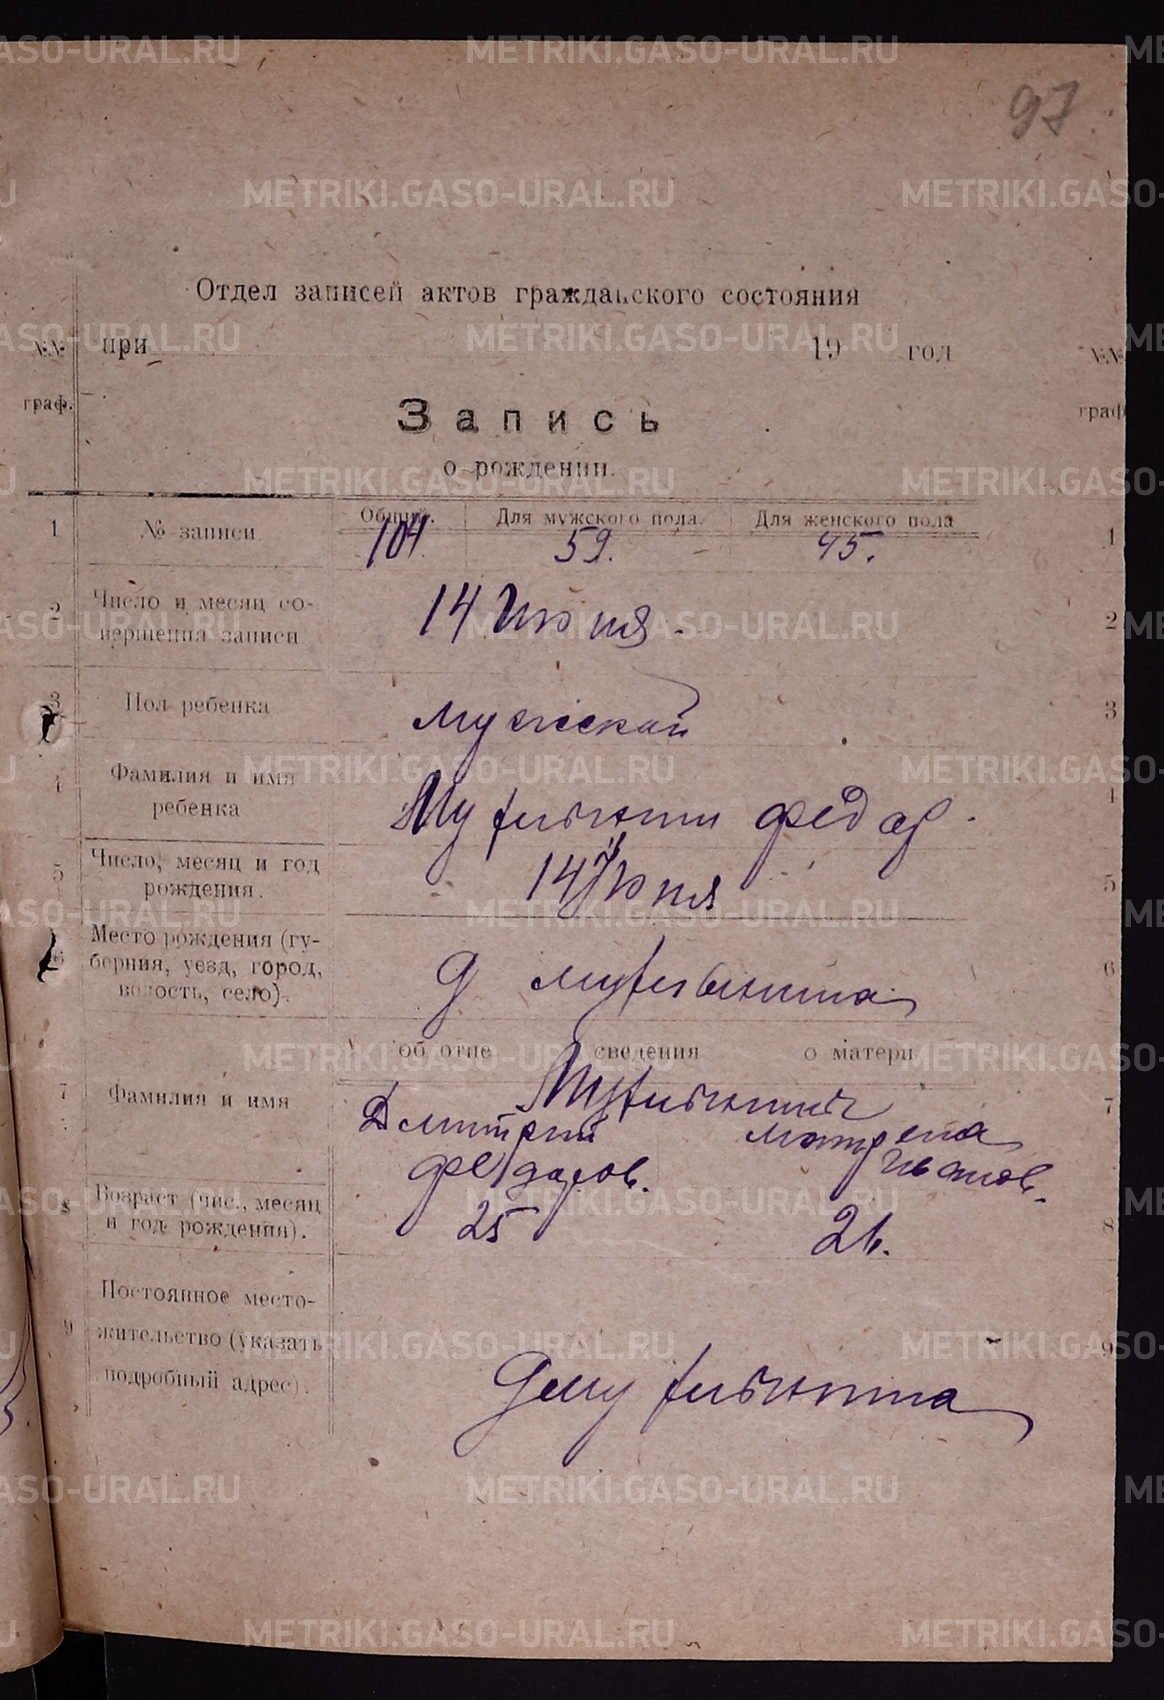 97
Отдел записей актов гражданского состояния
при 19 год
№№ граф.
№№ граф
Запись
о рождении.
1 № записи Общий. Для мужского пола. Для женского пола 1
104. 59. 45.
2 Число и месяц совершения записи 14 Июня. 2
3 Пол ребенка мужской 3
4 Фамилия и имя ребенка Федор. 4
5 Число, месяц и год рождения. 14 Июня 5
6 Место рождения (губерния, уезд, город, волость, село). д 6
об отце сведения о матери
7 Фамилия и имя 7
Дмитрий Матрена
Федоров. Иванов.
8 Возраст (чис., месяц и год рождения). 25 26. 8
9 Постоянное местожительство (указать подробный адрес). 9
METRIKI.GASO-URAL.RU